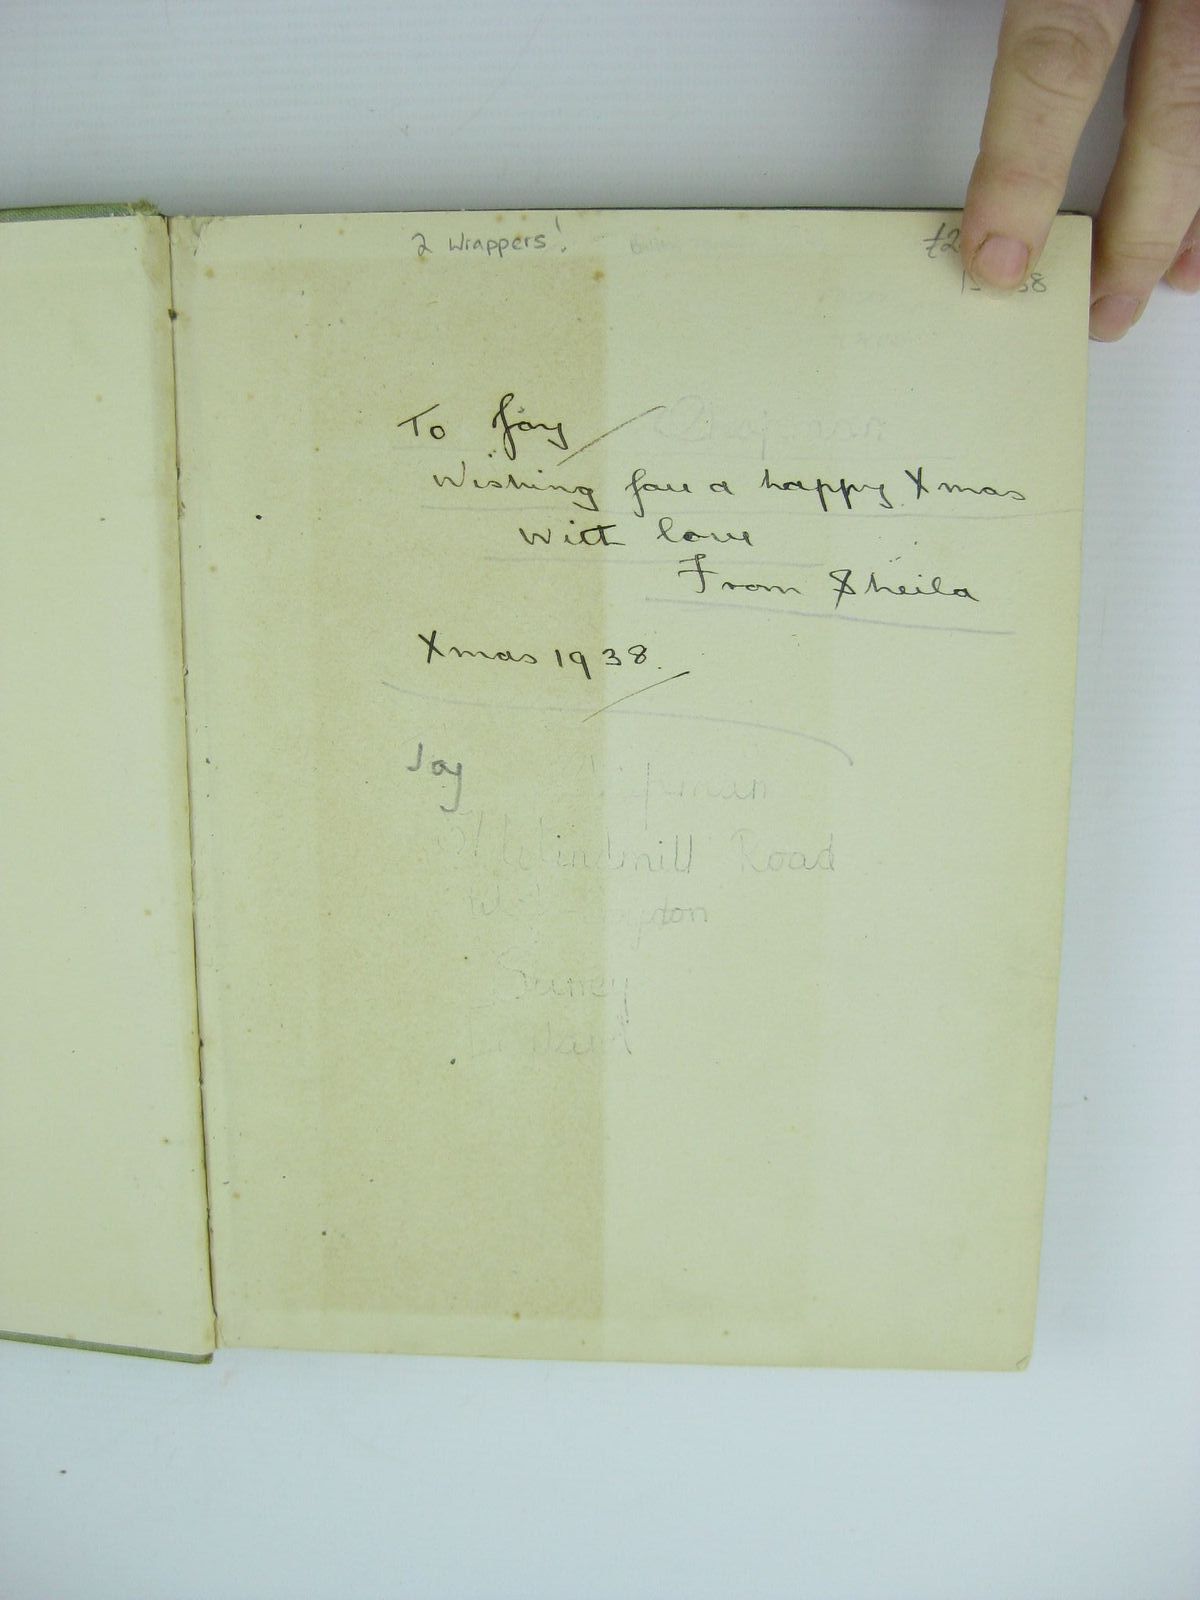 2 Wrappers!
£2
To Joy
Wishing you a happy Xmas
With love
From Sheila
Xmas 1938.
Joy
Windmill Road
Surrey